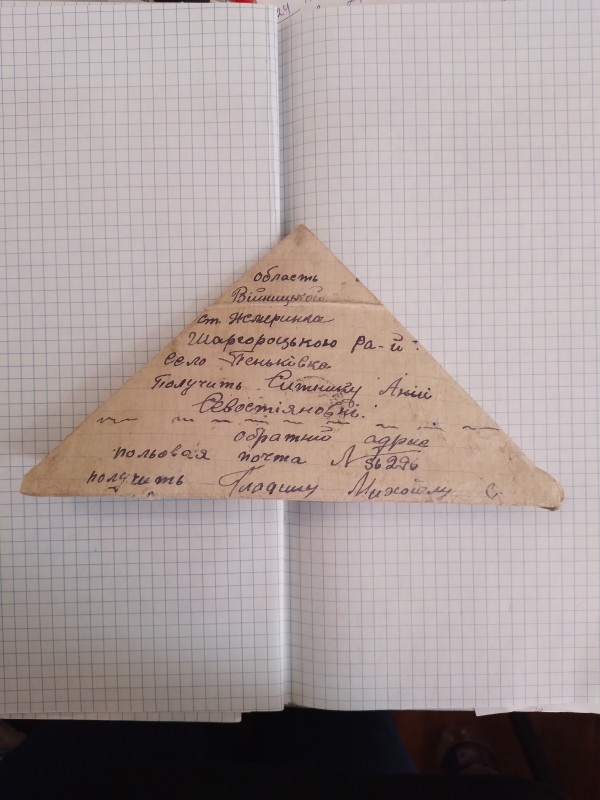 область
Війницькой
ст. Жмеринка
Шаргороцькою ра-й
село Пеньківка
Получить Ситнику Аній
Севостіяновні.
обратній адрес
польовая почта N 36296
получить Гладишу Михайлу С.
24